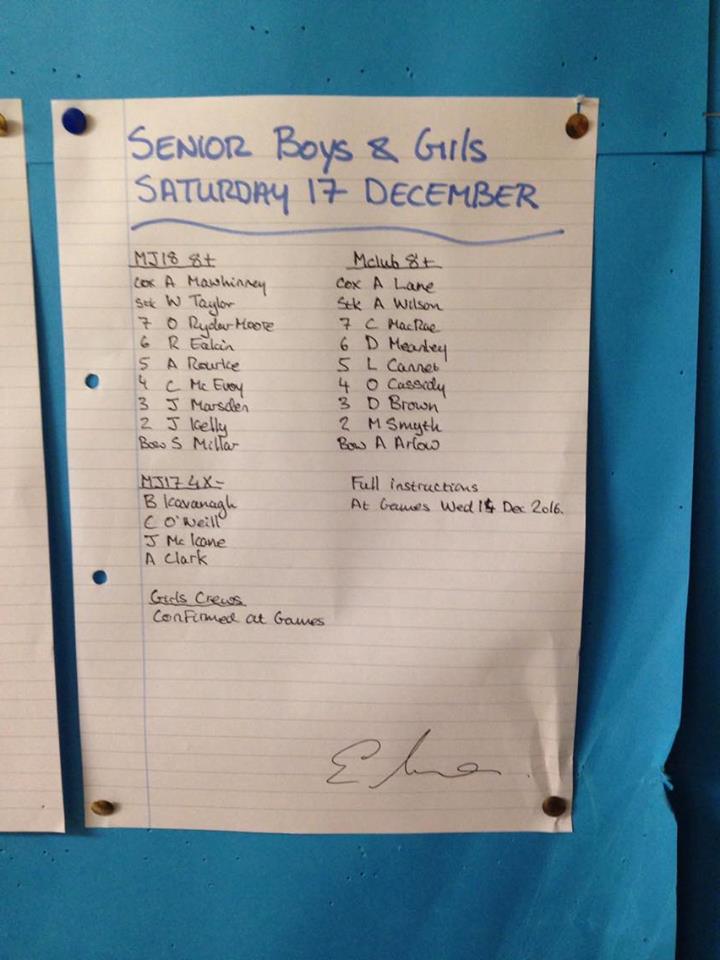 SENIOR BOYS & GIRLS
SATURDAY 17 DECEMBER
MJ18 8+
Cox A Mawhinney
Stk W Taylor
7 O Ryder-Moore
6 R Eakin
5 A Rourke
4 C Mc Evoy
3 J Marsden
2 J Kelly
Bow S Millar
MJ17 4X-
B Kavanagh
C O'Neill
J Mc Kane
A Clark
Girls Crews
Confirmed at Games
Mclub 8+
Cox A Lane
Stk A Wilson
7 C MacRae
6 D Mearley
5 L Cannet
4 O Cassidy
3 D Brown
2 M Smyth
Bow A Arlow
Full instructions
At Games Wed 14 Dec 2016.